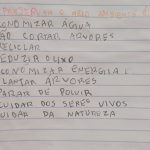 PRESERVAR O MEIO AMBIENTE É
ECONOMIZAR ÁGUA
NÃO CORTAR ÁRVORES
RECICLAR
REDUZIR O LIXO
ECONOMIZAR ENERGIA
PLANTAR ÁRVORES
PARAR DE POLUIR
CUIDAR DOS SERES VIVOS
CUIDAR DA NATUREZA